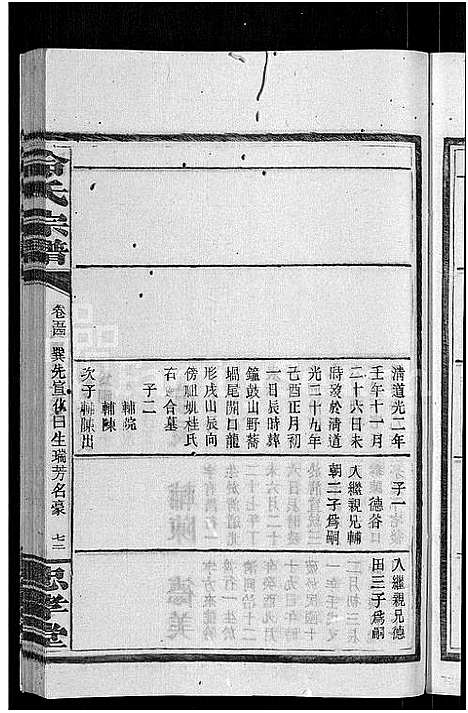 清道光二年　子一
壬午十一月
二十六日未　入繼親兄輔
時歿於清道　朝二子爲嗣
光二十九年
己酉正月初
一日辰時葬
鐘鼓山野蕎
堝尾開口龍
形戌山辰向
傍祖妣桂氏
右合墓
子二
輔院
輔陳
次子輔陳出
入繼親兄德
田三子爲嗣
氏宗譜
巽先宣 日生瑞芳名豪
七二
孝堂